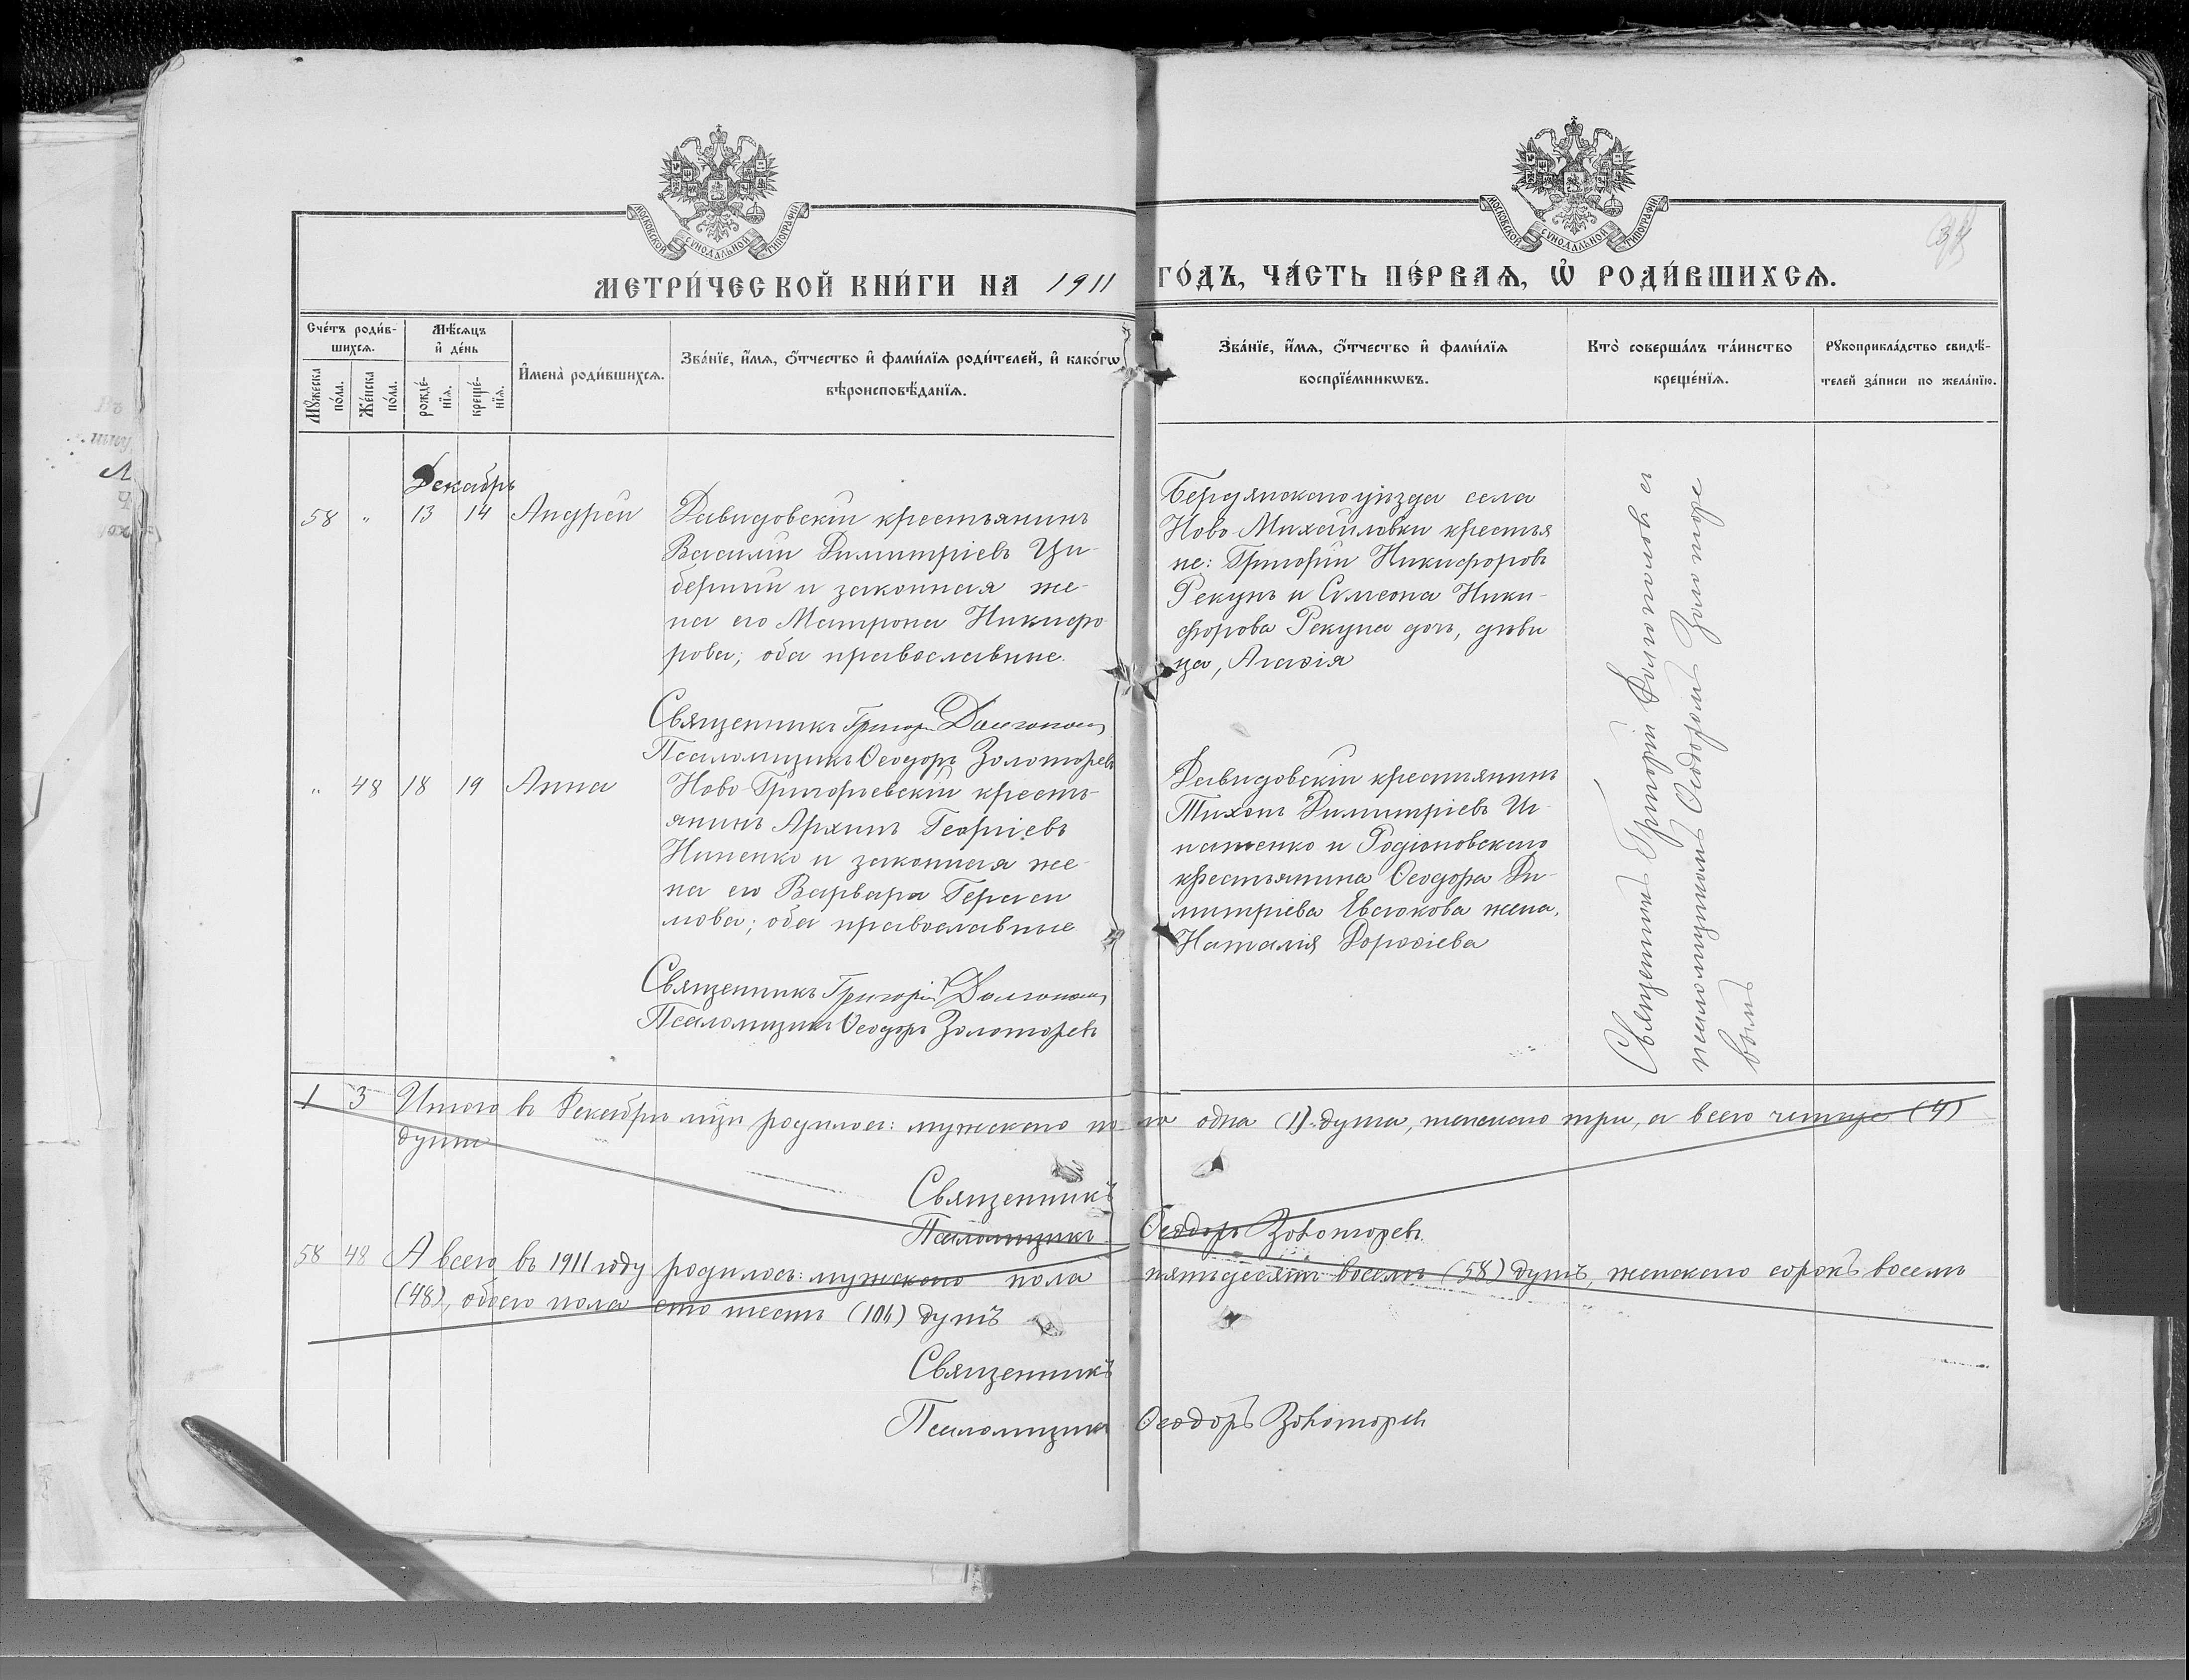 МОСКОВСКОЙ СУНОДАЛЬНОЙ ТИПОГРАФІИ
МОСКОВСКОЙ СУНОДАЛЬНОЙ ТИПОГРАФІИ
МЕТРИ́ЧЕСКОЙ КНИ́ГИ НА 1911 ГО́ДЪ, ЧА́СТЬ ПЕ́РВАѦ, Ѡ РОДИ́ВШИХСѦ.
Сче́тъ роди́в-
шихсѧ.
Мꙋ́жеска по́ла.
Же́нска по́ла.
Мѣ́сѧцъ
и҆ де́нь
рожде́-
нїѧ.
креще́-
нїѧ.
И҆мена̀ роди́вшихсѧ.
Зва́нїе, и҆́мѧ, ѻ҆́тчество и҆ фами́лїѧ роди́телей, и҆ како́гѡ
вѣроисповѣ́данїѧ.
Зва́нїе, и҆́мѧ, ѻ҆́тчество и҆ фами́лїѧ
воспрїе́мникѡвъ.
Кто̀ соверша́лъ та́инство
креще́нїѧ.
Рꙋкоприкла́дство свидѣ́-
телей за́писи по жела́нїю.
Декабрь
58 " 13 14 Андрей
Давидовскій крестьянинъ
Василій Димитріевъ Ци-
берный и законная же-
на его Матрона Никифо-
рова; оба православные.
Священникъ Григорій Долгополовъ
Псаломщикъ Ѳеодоръ Золоторевъ
Бердянскаго уѣзда села
Ново-Михайловки крестья
не: Григорій Никифоровъ
Рекунъ и Симеона Ники-
форова Рекуна дочь, дѣви
ца, Агаѳія
" 48 18 19 Анна
Ново-Григорьевскій кресть-
янинъ Архипъ Георгіевъ
Ниненко и законная же-
на его Варвара Гераси
мова; оба православные
Священникъ Григорій Долгополовъ
Псаломщикъ Ѳеодоръ Золоторевъ
Давидовскій крестьянинъ
Тихонъ Димитріевъ Иг-
натенко и Родіоновскаго
крестьянина Ѳеодора Ди-
митріева Евсюкова жена,
Наталія Дороѳіева
Священникъ Григорій Долгополовъ съ
псаломщикомъ Ѳеодоромъ Золоторе
вымъ
1 3 Итого въ Декабрѣ мцѣ родилось: мужского пола одна (1) душа, женскаго три, а всего четыре (4)
души
Священникъ
Псаломщикъ Ѳеодоръ Золоторевъ
58 48 А всего въ 1911 году родилось: мужского пола пятьдесятъ восемь (58) душъ, женскаго сорокъ восемь
(48), обоего пола сто шесть (106) душъ
Священникъ
Псаломщикъ Ѳеодоръ Золоторевъ